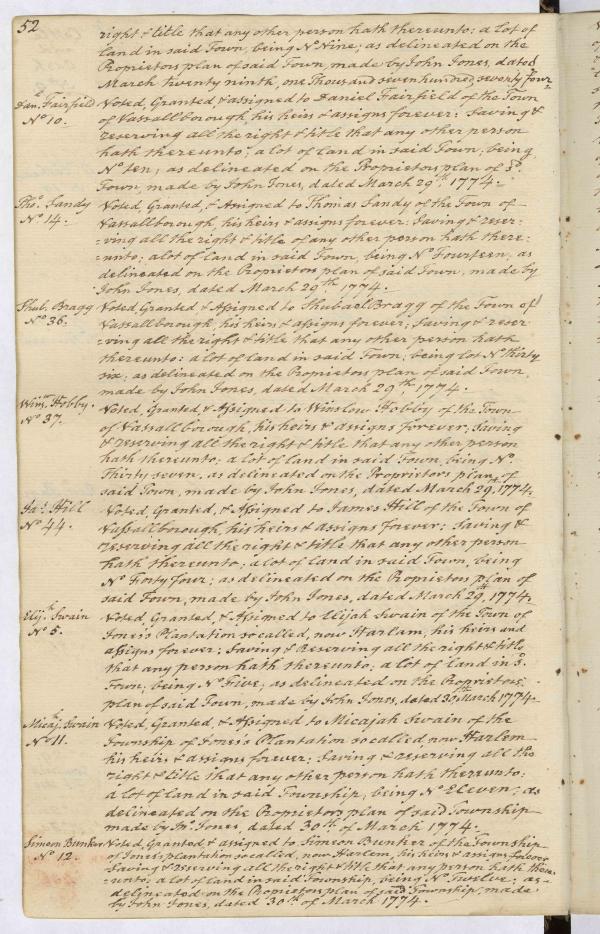 52
right & title that any other person hath thereunto: a lot of
land in said Town, being No. Nine; as delineated on the
Proprietors plan of said Town, made by John Jones, dated
March twenty ninth, one Thousand seven hundred, seventy four
Danl. Fairfield Voted, Granted & assigned to Daniel Fairfield of the Town
No. 10. of Vassallborough, his heirs & assigns forever: Saving &
reserving all the right & title that any other person
hath thereunto: a lot of land in said Town, being
No. ten; as delineated on the Proprietors plan of sd.
Town, made by John Jones, dated March 29th. 1774.
Thos. Tandy Voted, Granted, & Assigned to Thomas Tandy of the Town of
No. 14. Vassallborough, his heirs & assigns forever: Saving & reser-
-ving all the right & title of any other person hath there-
-unto; a lot of land in said Town, being No. Fourteen, as
delineated on the Proprietors plan of said Town, made by
John Jones, dated March 29th. 1774.
Shub. Bragg Voted, Granted & Assigned to Shubael Bragg of the Town of
No. 36. Vassallborough, his heirs & assigns forever; Saving & reser-
-ving all the right & title that any other person hath
thereunto: a lot of land in said Town; being lot No. thirty
six; as delineated on the Proprietors plan of said Town,
made by John Jones, dated March 29th. 1774.
Winw. Hobby. Voted, Granted, & Assigned to Winslow Hobby of the Town
No. 37. of Vassallborough, his heirs & assigns forever; Saving
& reserving all the right & title that any other person
hath thereunto; a lot of land in said Town, being No.
Thirty seven, as delineated on the Proprietors plan of
said Town, made by John Jones, dated March 29th. 1774.
Jas. Hill Voted, Granted, & Assigned to James Hill of the Town of
No. 44. Vassallborough, his heirs & assigns forever: Saving &
reserving all the right & title that any other person
hath thereunto; a lot of land in said Town, being
No. Forty Four; as delineated on the Proprietors plan of
said Town, made by John Jones, dated March 29th. 1774.
Elijh. Swain Voted, Granted, & Assigned to Elijah Swain of the Town of
No. 5. Jones's Plantation so called, now Harlam, his heirs and
assigns forever: Saving & Reserving all the right & title
that any person hath thereunto; a lot of land in sd.
Town; being No. Five; as delineated on the Proprietors
plan of said Town, made by John Jones, dated 30th. March 1774.
Micajh. Swain Voted, Granted, & Assigned to Micajah Swain of the
No. 11. Township of Jones's Plantation so called now Harlem
his heirs & assigns forever; Saving & reserving all the
right & title that any other person hath thereunto:
a lot of land in said Township, being No. Eleven; as
delineated on the Proprietors plan of said Township
made by Mr. Jones, dated 30th. of March 1774.
Simeon Bunker Voted, Granted & assigned to Simeon Bunker of the Township
No. 12. of Jones's plantation so called, now Harlem, his heirs & assigns forever
Saving & reserving all the right & title that any person hath there-
-unto; a lot of land in said Township, being No. Twelve; as
delineated on the Proprietors plan of said Township, made
by John Jones, dated 30th. of March 1774.